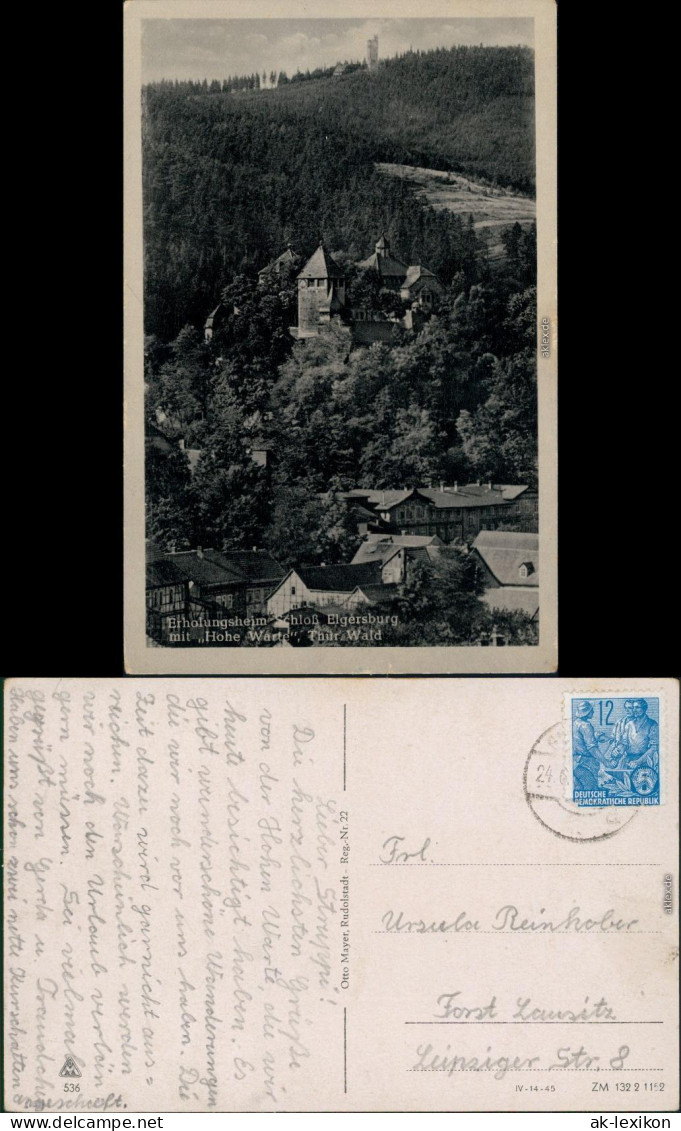 Erholungsheim Schloß Elgersburg
mit „Hohe Warte", Thür. Wald
aklex.de
Lieber Struppi!
Die herzlichsten Grüße
von der Hohen Warte, die wir
heute besichtigt haben. Es
gibt wunderschöne Wanderungen
die wir noch vor uns haben. Die
Zeit dazu wird garnicht aus=
reichen. Warscheinlich werden
wir noch den Urlaub verlän
gern müssen. Sei vielmals
gegrüßt von Gerda u. Traudchen
Haben uns schon zwei nette Kurschatten
angeschafft.
536
Otto Mayer, Rudolstadt - Reg.-Nr. 22
24.
12
DEUTSCHE
DEMOKRATISCHE REPUBLIK
Frl.
Ursula Reinhober
Forst Lausitz
Leipziger Str. 8
IV-14-45
ZM 132 2 1152
aklex.de
www.ak-ansichtskarten.de
ak-lexikon